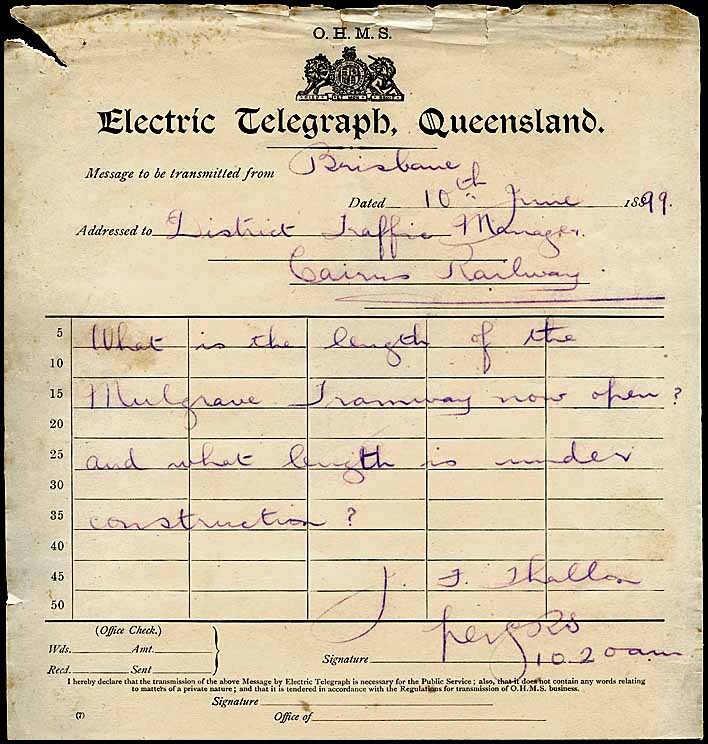 O. H. M. S.
Electric Telegraph, Queensland.
Message to be transmitted from Brisbane
Dated 10th June 1899.
Addressed to District Traffic Manager.
Cairns Railway.
5 What is the length of the
10
15 Mulgrave Tramway now open ?
20
25 and what length is under
30
35 construction ?
40
45 J. F. Thallon
50
(Office Check.)
Wds. Amt.
Signature per
Recd. Sent
10.20 am
I hereby declare that the transmission of the above Message by Electric Telegraph is necessary for the Public Service ; also, that it does not contain any words relating
to matters of a private nature ; and that it is tendered in accordance with the Regulations for transmission of O.H.M.S. business.
Signature
(7) Office of